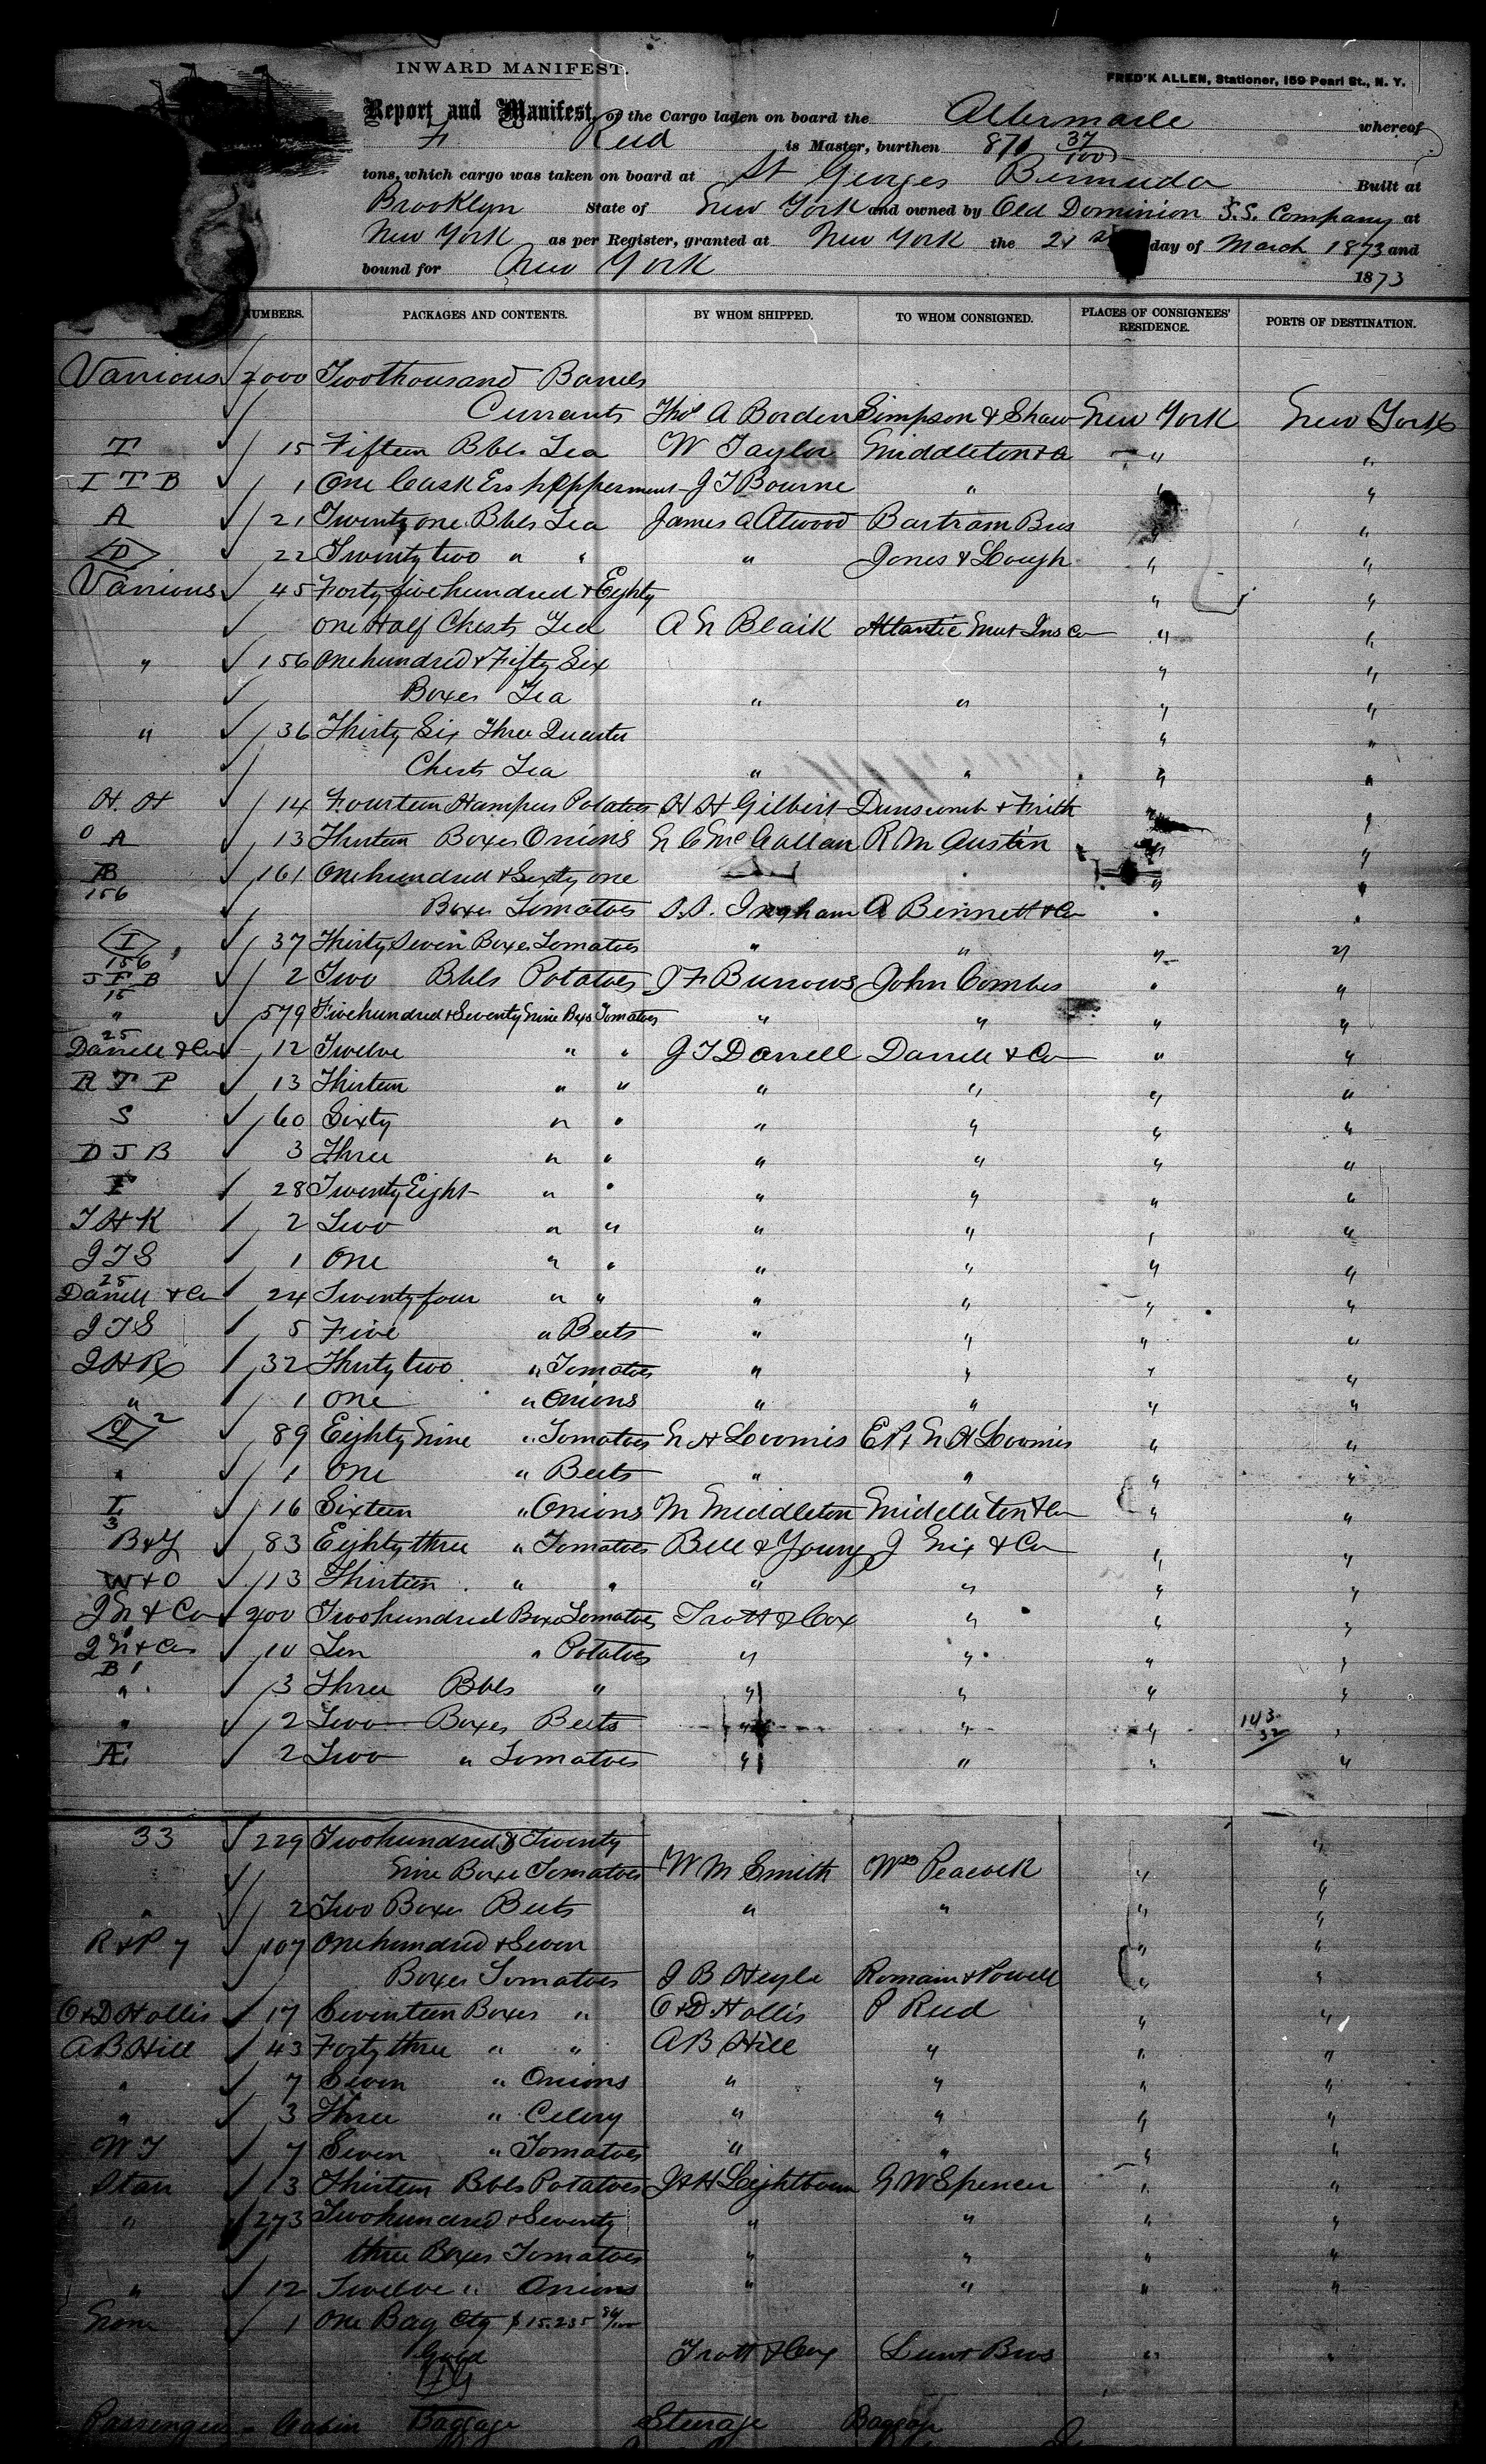 INWARD MANIFEST.
FRED'K ALLEN, Stationer, 159 Pearl St., N. Y.
Report and Manifest, of the Cargo laden on board the Albermarle whereof
F. Reid is Master, burthen 870 37/100
tons, which cargo was taken on board at St Georges Bermuda Built at
Brooklyn State of New York and owned by Old Dominion S.S. Company at
New York as per Register, granted at New York the 21 st day of March 1873 and
bound for New York 1873
NUMBERS. PACKAGES AND CONTENTS. BY WHOM SHIPPED. TO WHOM CONSIGNED. PLACES OF CONSIGNEES' RESIDENCE. PORTS OF DESTINATION.
Various 2000 Two thousand Barrels
Currants Thos A Borden Simpson & Shaw New York New York
T 15 Fifteen Bbls Tea W Taylor Middleton & Co " "
I T B 1 One Cask Ess J T Bourne " " "
A 21 Twenty one Bbls Tea James A Atwood Bartram Bros " "
D 22 Twenty two " " " Jones & Lough " "
Various 45 Forty five hundred & Eighty " "
one Half Chests Tea A N Blaik Atlantic Mut Ins Co " "
" 156 One hundred & Fifty Six " "
Boxes Tea " " " "
" 36 Thirty Six Three Quarter " "
Chests Tea " " " "
H. H 14 Fourteen Hampers Potatoes H H Gilbert Dunscomb & Frith " "
O A 13 Thirteen Boxes Onions N C McCallan R M Austin " "
B 156 161 One hundred & Sixty one " "
Boxes Tomatoes S. S. Ingham A Bennett & Co " "
I 156 37 Thirty Seven Boxes Tomatoes " " " "
J F B 15 2 Two Bbls Potatoes J F Burrows John Combes " "
" 579 Five hundred & Seventy Nine Bxs Tomatoes " " " "
25 Darrell & Co 12 Twelve " " J T Darrell Darrell & Co " "
R T P 13 Thirteen " " " " " "
S 60 Sixty " " " " " "
D J B 3 Three " " " " " "
F 28 Twenty Eight " " " " " "
T H K 2 Two " " " " " "
J T S 1 One " " " " " "
25 Darrell & Co 24 Twenty four " " " " " "
J T S 5 Five " Beets " " " "
J H R 32 Thirty two " Tomatoes " " " "
" 1 One " Onions " " " "
2 89 Eighty Nine " Tomatoes N H Loomis E P & N H Loomis " "
" 1 One " Beets " " " "
I 3 16 Sixteen " Onions M Middleton Middleton & Co " "
B & Y 83 Eighty three " Tomatoes Bell & Young J Nix & Co " "
W & O 13 Thirteen " " " " " "
J N & Co 200 Two hundred Boxes Tomatoes Trott & Cox " " "
J N & Co B 10 Ten " Potatoes " " " "
" 3 Three Bbls " " " " "
" 2 Two Boxes Beets " " " 143 32 "
Æ 2 Two " Tomatoes " " " "
33 229 Two hundred & Twenty "
Nine Boxes Tomatoes W M Smith Wm Peacock " "
" 2 Two Boxes Beets " " " "
R & P 7 107 One hundred & Seven " "
Boxes Tomatoes J B Heyle Romain & Powell " "
O & D Hollis 17 Seventeen Boxes " O & D Hollis P Reed " "
A B Hill 43 Forty three " " A B Hill " " "
" 7 Seven " Onions " " " "
" 3 Three " Celery " " " "
W T 7 Seven " Tomatoes " " " "
Star 13 Thirteen Bbls Potatoes J H Lightbourn G W Spencer " "
" 273 Two hundred & Seventy " " " "
three Boxes Tomatoes " " " "
" 12 Twelve " Onions " " " "
None 1 One Bag Ctg $ 15.235
Gold Trott & Cox Lunt Bros " "
Passenger Cabin Baggage Steerage Baggage